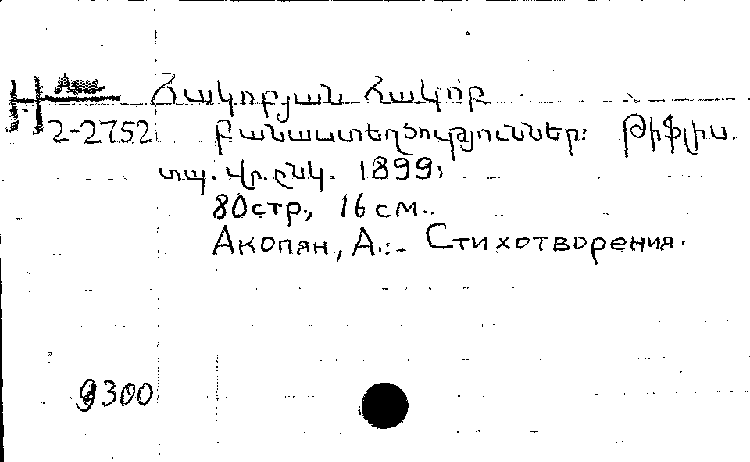 Н Арм
2-2752
Հակոբյան Հակոբ
Բանաստեղծություններ: Թիֆլիս.
տպ. Վր. ընկ. 1899,
80стр, 16см..
Акопян, А.:- Стихотворения.
9300